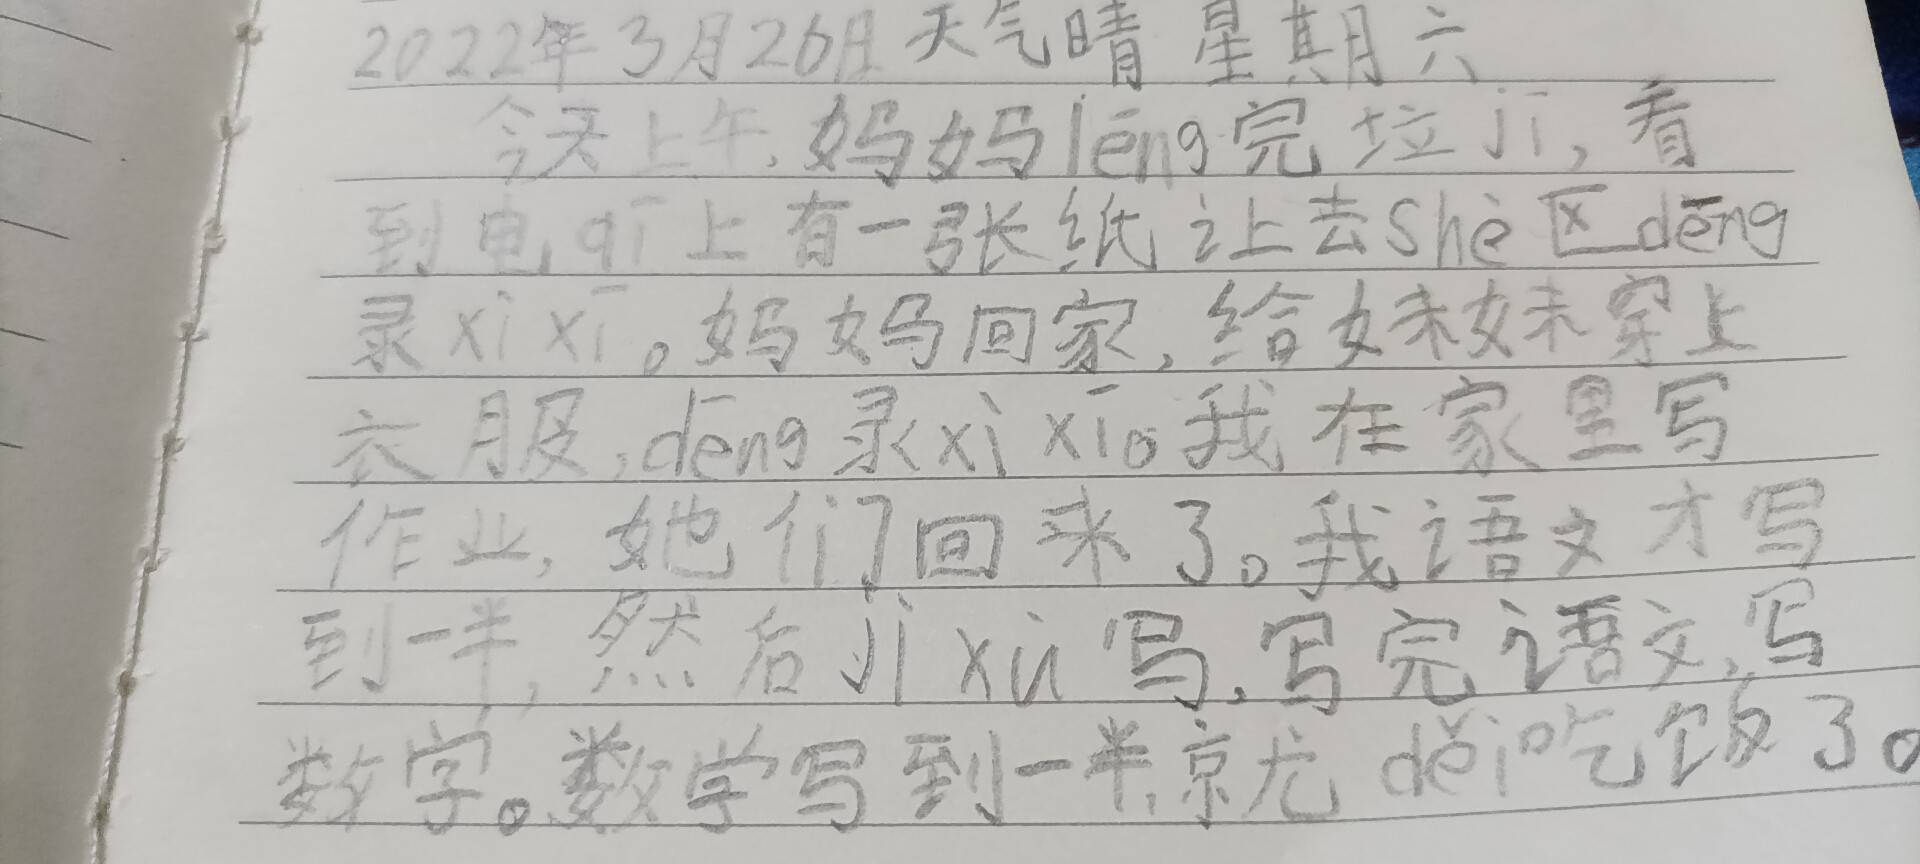 2022年3月26日天气晴 星期六
今天上午,妈妈lēng完垃jī,看
到电qī上有一张纸让去shè区dēng
录xìxī。妈妈回家,给妹妹穿上
衣服,dēng录xìxī。我在家里写
作业,她们回来了。我语文才写
到一半,然后jìxù写,写完语文,写
数字。数学写到一半,就děi吃饭了。